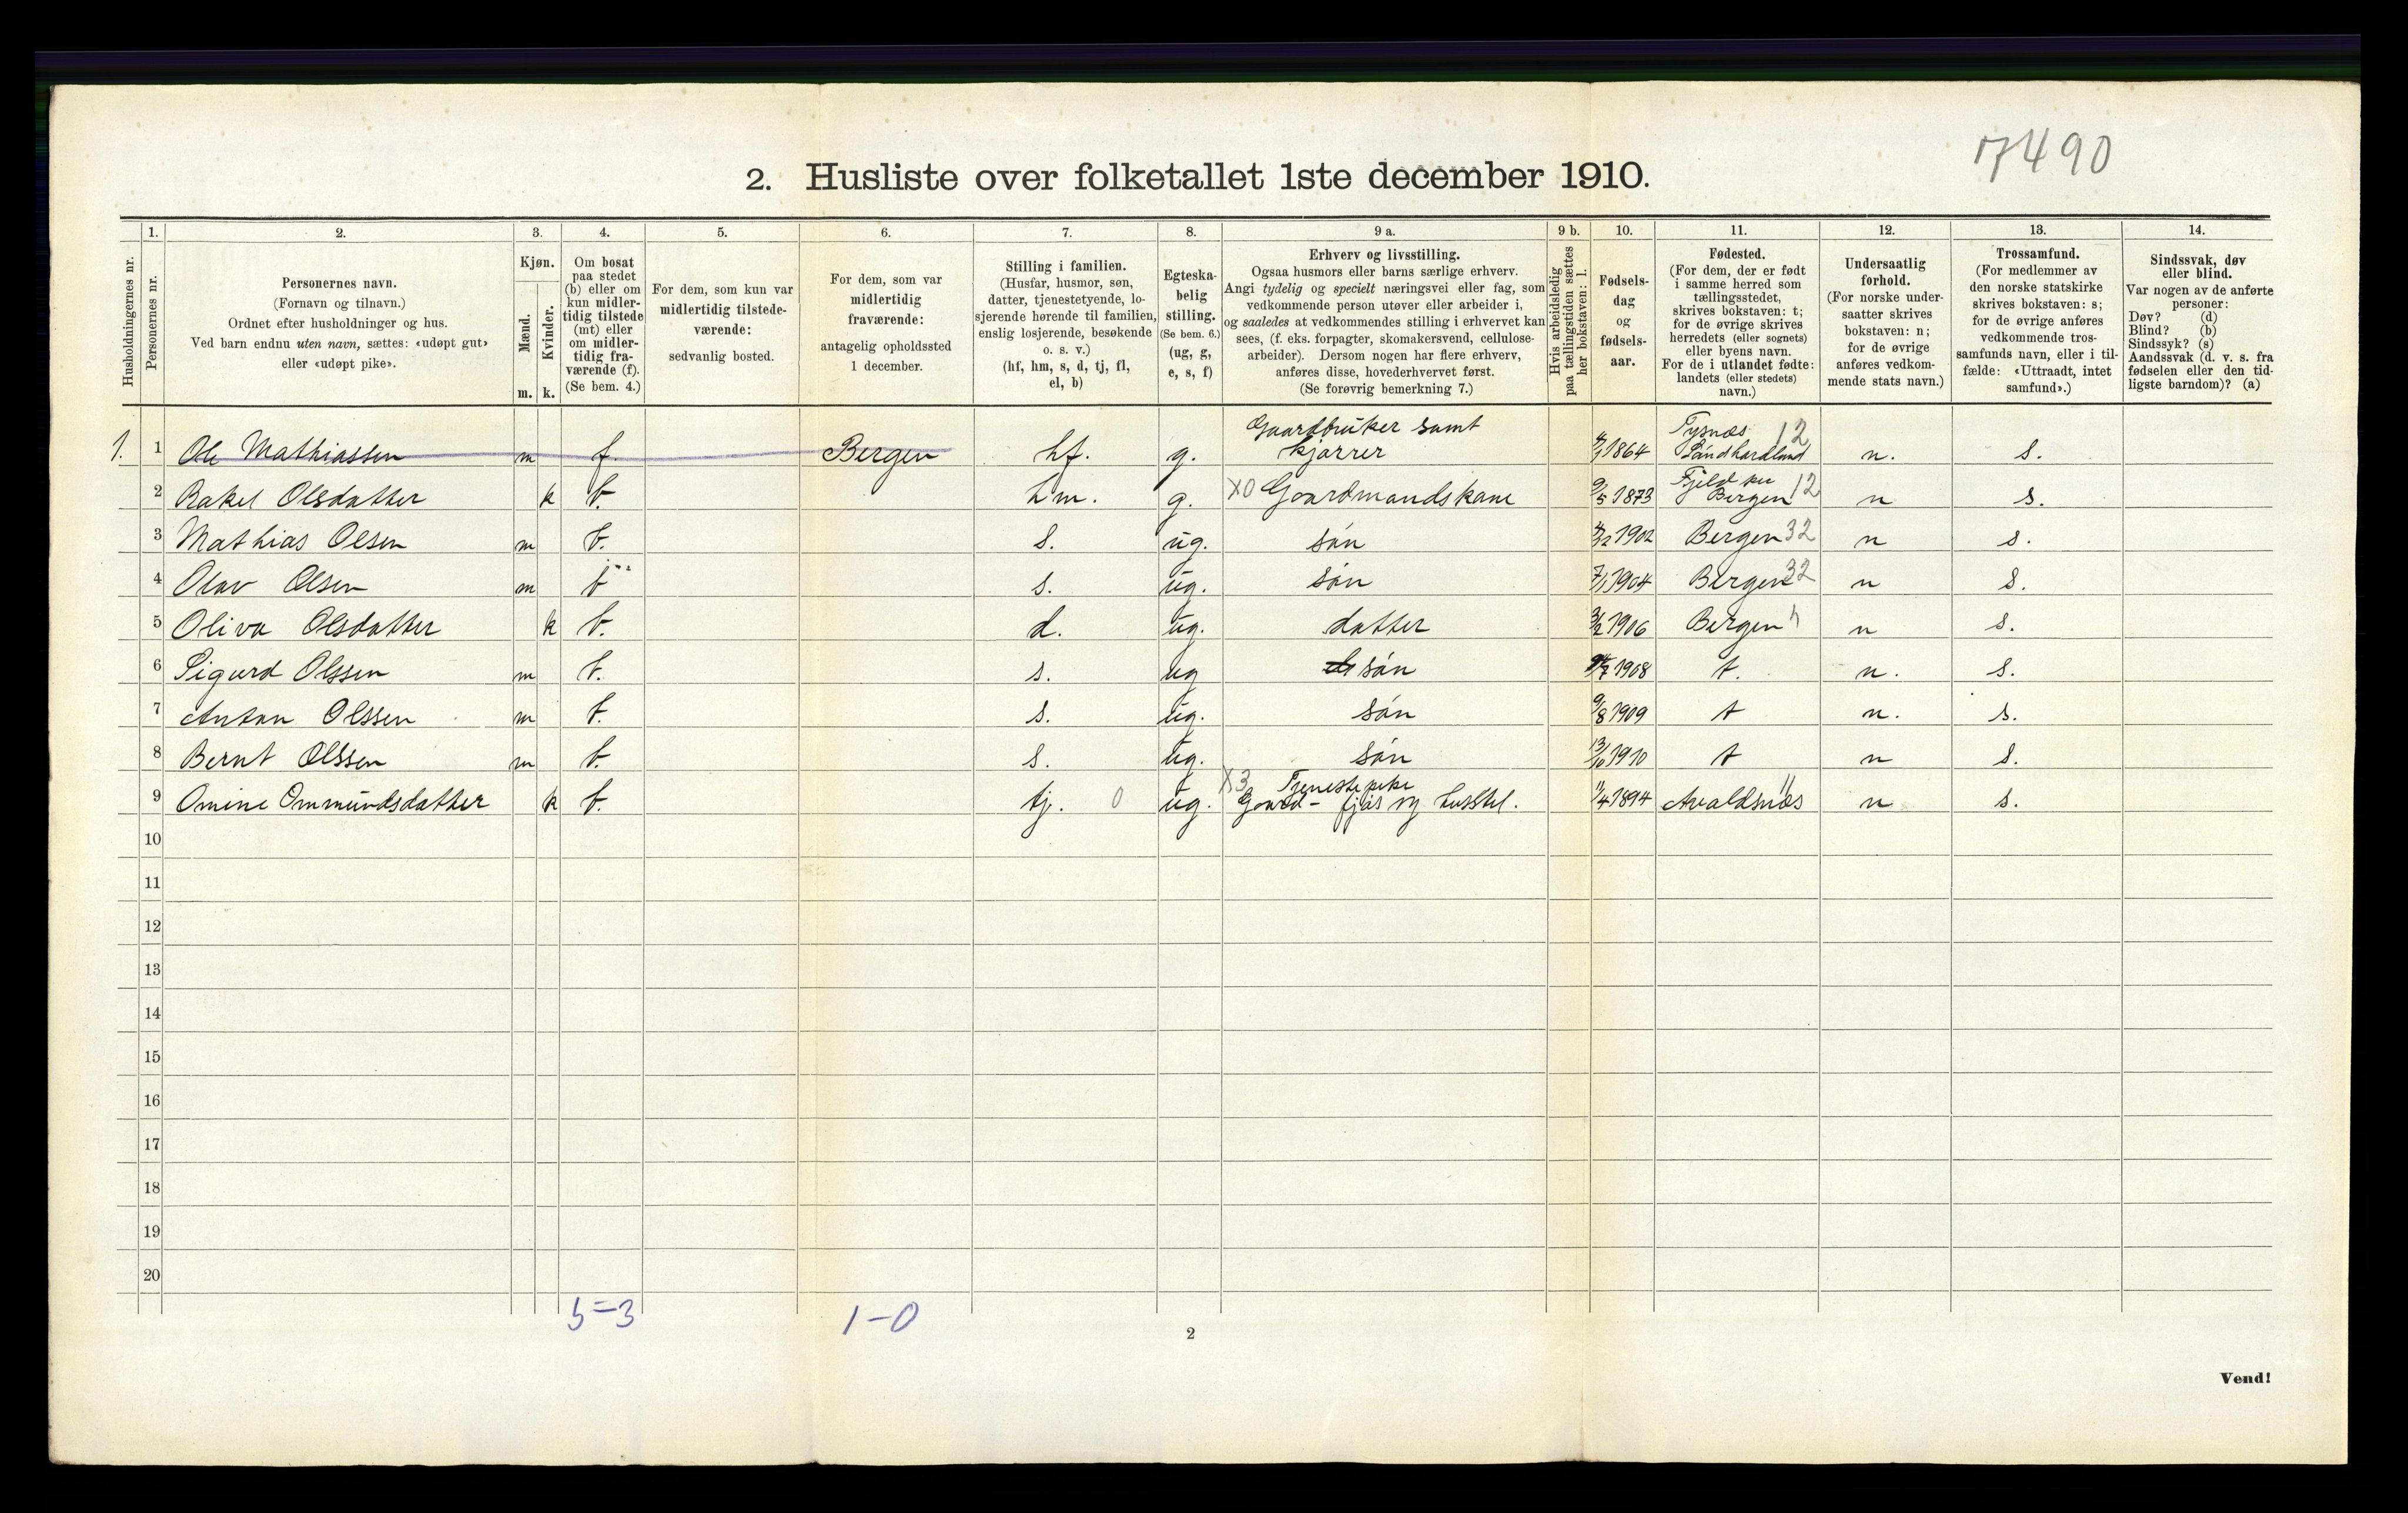 7490
2. Husliste over folketallet 1ste december 1910.
Husholdningernes nr.
1.
Personernes nr.
2.
Personernes navn.
(Fornavn og tilnavn.)
Ordnet efter husholdninger og hus.
Ved barn endnu uten navn, sættes: «udøpt gut»
eller «udøpt pike».
3.
Kjøn.
Mænd.
Kvinder.
m. k.
4.
Om bosat
paa stedet
(b) eller om
kun midler-
tidig tilstede
(mt) eller
om midler-
tidig fra-
værende (f).
(Se bem. 4.)
5.
For dem, som kun var
midlertidig tilstede-
værende:
sedvanlig bosted.
6.
For dem, som var
midlertidig
fraværende:
antagelig opholdssted
1 december.
7.
Stilling i familien.
(Husfar, husmor, søn,
datter, tjenestetyende, lo-
sjerende hørende til familien,
enslig losjerende, besøkende
o. s. v.)
(hf, hm, s, d, tj, fl,
el, b)
8.
Egteska-
belig
stilling.
(Se bem. 6.)
(ug, g,
e, s, f)
9 a.
Erhverv og livsstilling.
Ogsaa husmors eller barns særlige erhverv.
Angi tydelig og specielt næringsvei eller fag, som
vedkommende person utøver eller arbeider i,
og saaledes at vedkommendes stilling i erhvervet kan
sees, (f. eks. forpagter, skomakersvend, cellulose-
arbeider). Dersom nogen har flere erhverv,
anføres disse, hovederhvervet først.
(Se forøvrig bemerkning 7.)
9 b.
Hvis arbeidsledig
paa tællingstiden sættes
her bokstaven: l.
10.
Fødsels-
dag
og
fødsels-
aar.
11.
Fødested.
(For dem, der er født
i samme herred som
tællingsstedet,
skrives bokstaven: t;
for de øvrige skrives
herredets (eller sognets)
eller byens navn.
For de i utlandet fødte:
landets (eller stedets)
navn.)
12.
Undersaatlig
forhold.
(For norske under-
saatter skrives
bokstaven: n;
for de øvrige
anføres vedkom-
mende stats navn.)
13.
Trossamfund.
(For medlemmer av
den norske statskirke
skrives bokstaven: s;
for de øvrige anføres
vedkommende tros-
samfunds navn, eller i til-
fælde: «Uttraadt, intet
samfund».)
14.
Sindssvak, døv
eller blind.
Var nogen av de anførte
personer:
Døv? (d)
Blind? (b)
Sindssyk? (s)
Aandssvak (d. v. s. fra
fødselen eller den tid-
ligste barndom)? (a)
1. 1 Ole Mathiassen m f. Bergen hf. g. Gaardbruker samt kjørrer 1864 Tysnæs Søndhordland 12 n. s.
2 Rakel Olsdatter k b. hm. g. X0 Gaardmandskane 9/5 1873 Fjeld Bergen 12 n s.
3 Mathias Olsen m b. s. ug. søn 1902 Bergen 32 n s.
4 Olav Olsen m b s. ug. søn 7/1 1904 Bergen 32 n s.
5 Oliva Olsdatter k b. d. ug. datter 3/2 1906 Bergen n s.
6 Sigurd Olssen m b. s. ug søn 1908 t. n. s.
7 Anton Olssen m b. s. ug. søn 9/8 1909 t n. s.
8 Bernt Olssen m b. s. ug. søn 13/10 1910 t n s.
9 Omine Ommundsdatter k b. tj. 0 ug. X3 Tjenestepike Gaard- fjøs og husstel. 11/4 1894 Avaldsnæs 11 n s.
10
11
12
13
14
15
16
17
18
19
20
5=3 1-0
2
Vend!